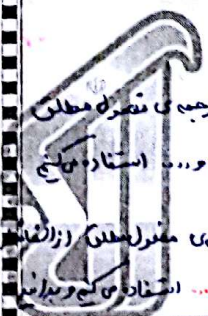 جمه ی مفعول مطلق
و.... استفاده می‌کنیم
ی مفعول مطلق از الفا
... استفاده می کنیم و بدانید